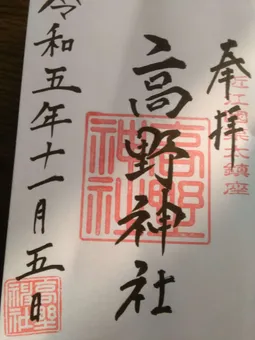 奉拝
近江國栗太鎮座
高野神社
高野
神社
令和五年十一月五日
高野
神社